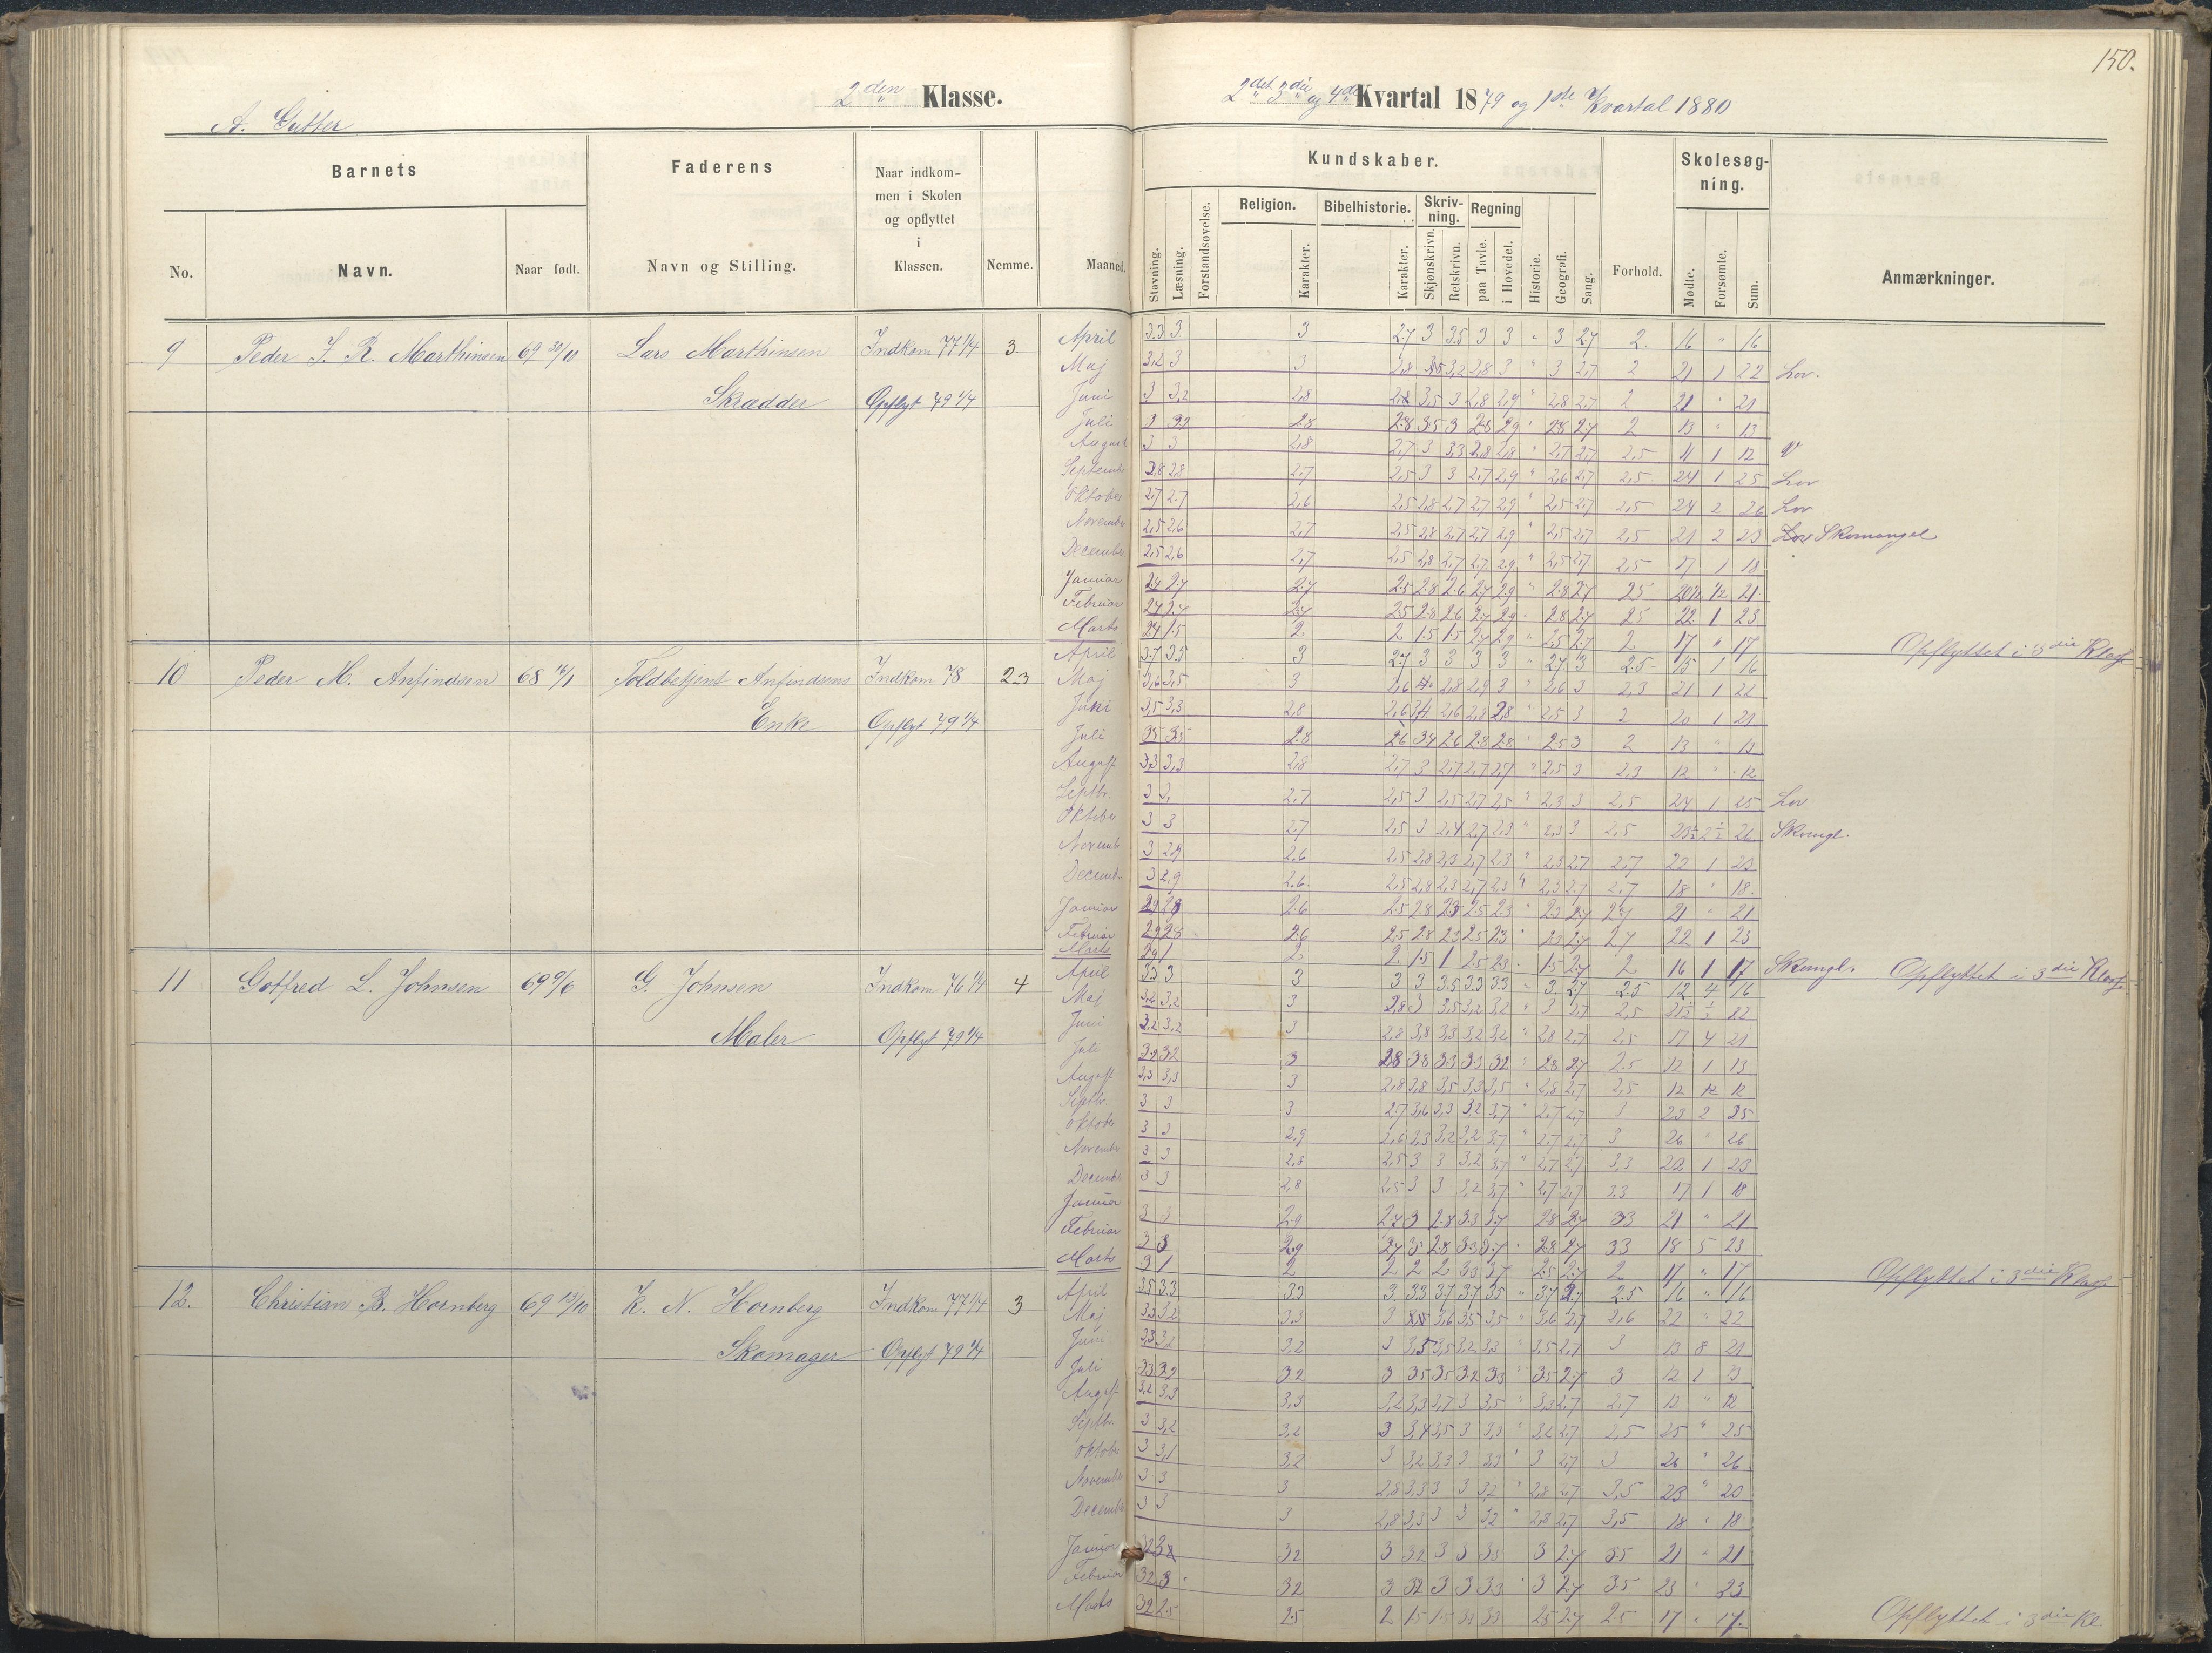 150.
2den Klasse.
2det 3die og 4de Kvartal 1879 og 1ste Kvartal 1880
A. Gutter
Barnets
Faderens
Naar indkommen i Skolen og opflyttet i Klassen.
Nemme.
Maaned.
Kundskaber.
Skolesøgning.
No.
Navn.
Naar født.
Navn og Stilling.
Stavning.
Læsning.
Forstandsøvelse.
Religion.
Karakter.
Bibelhistorie.
Karakter.
Skrivning.
Skjønskrivn.
Retskrivn.
Regning
paa Tavle.
i Hovedet.
Historie.
Geografi.
Sang.
Forhold.
Mødte.
Forsømte.
Sum.
Anmærkninger.
9 Peder J. R. Marthinsen 69 30/10 Lars Marthinsen Indkom 77 1/4 3 April 3.3 3. 3 2.7 3 3.5 3 3 " 3 2.7 2. 16 " 16
Maj 3,2 3 3 21 1 22 Lov.
Skrædder Opflyt 79 1/4 Juni 3 3,2 2,8 2 21 " 21
Juli 2.8 2 13 " 13
August 3 3 2,8 2,5 11 1 12
September 2,8 2,8 2,7 2,5 3 3 2,7 2,9 " 2,6 2,7 2,5 24 1 25 Lov
Oktober 2,7 2,7 2,6 2,5 2,8 2,7 2,7 2,9 " 2,5 2,7 2,5 24 2 26 Lov
November 2,5 2,6 2,7 2,5 2,8 2,7 2,7 2,9 " 2,5 2,7 2,5 21 2 23 Skomangel
December 2,5 2,6 2,7 2,5 2,8 2,7 2,7 2,9 " 2,5 2,7 2,5 17 1 18
Januar 2.4 2.7 2.7 2.5 2.8 2.6 2.7 2.9 " 2.8 2.7 2.5 20 1/2 1/2 21
Februar 2.4 2.7 2.7 2.5 2.8 2.6 2.7 2.9 " 2.8 2.7 2.5 22 1 23
Marts 2.4 1.5 2 2 1.5 1.5 2.7 2.9 " 2.5 2.7 2 17 " 17 Opflyttet i 3die Klasse
10 Peder M. Anfindsen 68 16/1 Toldbetjent Anfindsens Indkom 78 2-3 April 3.7 3.5 3 2.7 3 3 3 3 " 2.7 3 2.5 15 1 16
Maj 3,6 3,5 3 2,3 21 1 22
Enke Opflyt 79 1/4 Juni 3,5 3,3 2,8 2,6 3,4 2,6 2,8 2,8 " 2,5 3 2 20 1 21
Juli 3.5 3.5 2.8 2.6 3.4 2.6 2.8 2.8 " 2.5 3 2 13 " 13
August 3,3 3,3 2,8 2,7 3 2,7 2,7 2,7 " 2,5 3 2,3 12 " 12
Septbr. 3 3, 2,7 2,5 3 2,5 2,7 2,5 " 2,3 3 2,5 24 1 25 Lov
Oktober 3 3 2,7 2,5 3 2,4 2,7 2,3 " 2,3 3 2,5 23 1/2 2 1/2 26 Skomgl.
Novemb. 3 2,9 2,6 2,5 2,8 2,3 2,7 2,3 " 2,3 2,7 2,7 22 1 23
Decemb. 3 2,9 2,6 2,5 2,8 2,3 2,7 2,3 " 2,3 2,7 2,7 18 " 18.
Januar 2.9 2.8 2.6 2.5 2.8 2.3 2.5 2.3 " 2.3 2.7 2.7 21 " 21
Februar 2.9 2.8 2.6 2.5 2.8 2.3 2.5 2.3 " 2.3 2.7 2.7 22 1 23
Marts 2.9 1 2 2 1.5 1 2.5 2.3 " 1.5 2.7 2 16 1 17 Skomgl. Opflyttet i 3die Klasse
11 Gotfred L. Johnsen 69 9/6 G. Johnsen Indkom 76 1/4 4 April 3.3 3 3 3 3 3.5 3.3 3.3 " 3. 2.7 2.5 12 4 16
Maj 3,2 3,2 3 2,8 3 3,5 3,2 3,2 " 3 2,7 2,5 21 1/2 1/2 22
Maler Opflyt 79 1/4 Juni 3,2 3,2 3 2,8 3,8 3,3 3,2 3,2 " 2,8 2,7 2,5 17 4 21
Juli 3.2 3.2 3 2.8 3.8 3.3 3.3 3.2 " 2.8 2.7 2.5 12 1 13
August 3,3 3,3 3 2,8 3,8 3,5 3,3 3,5 " 2,8 2,7 2,5 12 12
Septbr. 3 3 3 2,7 3,6 3,3 3,2 3,7 " 2,7 2,7 3 23 2 25
Oktober 3 3 2,9 2,6 3,3 3,2 3,2 3,7 " 2,7 2,7 3 26 " 26
November 3 3 2,8 2,5 3 3 3,2 3,7 " 2,7 2,7 3,3 22 1 23
December 3 3 2,8 2,5 3 3 3,2 3,7 " 2,7 2,7 3,3 17 1 18
Januar 3 3 2.9 2.7 3 2.8 3.3 3.7 2.8 2.7 3.3 21 " 21
Februar 3 3 2.9 2.7 3 2.8 3.3 3.7 " 2.8 2.7 3.3 18 5 23
Marts 3 1 2 2 2 2 3.3 3.7 2.5 2.7 2 17 " 17 Opflyttet i 3die Klasse
12. Christian B. Hornberg 69 13/10 K. N. Hornberg Indkom 77 1/4 3 April 3.5 3.3 3.3 3. 3.3 3.7 3.7 3.5 " 3.7 2.7 2.5 16 " 16
Maj 3,3 3,2 3,3 3 3,6 3,5 3,5 " 3,6 2,7 2,6 22 " 22
Skomager Opflyt 79 1/4 Juni 3,3 3,2 3,2 3 3,5 3,5 3,2 3,3 " 3,5 2,7 3 13 8 21
Juli 3.3 3.2 3.2 3 3.5 3.5 3.2 3.3 " 3.5 2.7 3 12 1 13
August 3,2 3,3 3,3 3,2 3,3 3,7 3 3,5 " 3,3 2,7 2,7 12 " 12
Septbr. 3 3,2 3,2 3 3,4 3,5 3 3,3 " 3,2 2,7 2,5 25 " 25
Oktober 3 3,1 3,2 3 3,2 3,3 3 3,3 " 3 2,7 3 26 " 26
November 3 3 3 2,8 3,3 3 3 3,2 " 2,8 2,7 3,5 23 "
December 3 3 3 2,8 3,3 3 3 3,2 " 2,8 2,7 3,5 18 " 18
Januar 3.2 3.2 3 3.2 3 3 3.3 3 2.7 3.5 21 " 21
Februar 3.2 3 3.2 3 3.2 3 3 3.3 " 3 2.7 3.5 23 " 23
Marts 3.2 2.5 2.5 2 1.5 1.5 3.3 2.5 2.7 2.5 17 " 17. Opflyttet i 3die Kl.